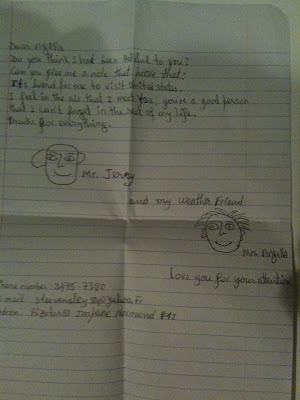 Dear Aylla
Do you think I had been helpful to you?
Can you give me a note that prove that?
It's hard for me to visit United states.
I feel in the air that I meet you, you're a good person
that I can't forget in the rest of my life.
thanks for everything.
Mr. Jerry
and my weather friend
Mrs Angella
Love you for your attention
Phone number 3475-7380
e-mail
Bizoton